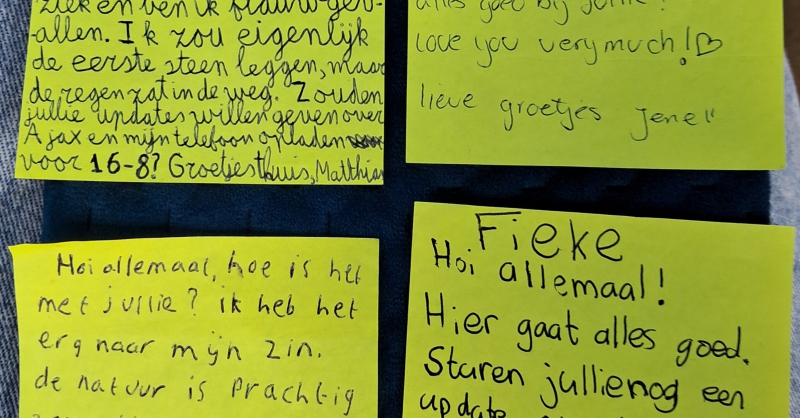 ziek en ben ik flauw gev-
allen. Ik zou eigenlijk
de eerste steen leggen, maar
de regen zat in de weg. Zouden
jullie updates willen geven over
Ajax en mijn telefoon opladen
voor 16-8? Groetjes thuis, Matthias
alles goed bij jullie?
love you very much!♡
lieve groetjes Jene"
Hoi allemaal, hoe is het
met jullie? ik heb het
erg naar mijn zin.
de natuur is prachtig
Fieke
Hoi allemaal!
Hier gaat alles goed.
Sturen jullie nog een
update